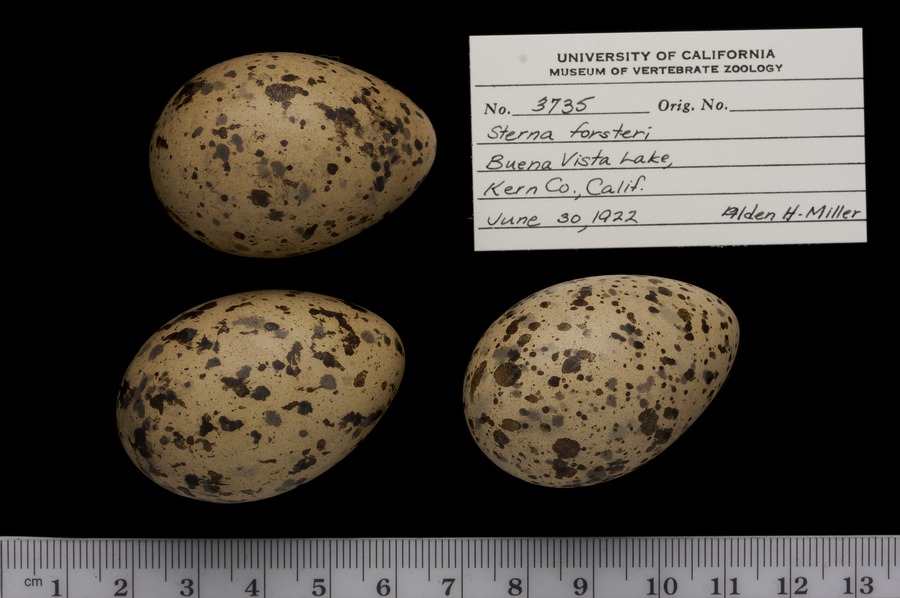 UNIVERSITY OF CALIFORNIA
MUSEUM OF VERTEBRATE ZOOLOGY
No. 3735 Orig. No.
Sterna forsteri
Buena Vista Lake,
Kern Co., Calif.
June 30, 1922 Alden H. Miller
cm 1 2 3 4 5 6 7 8 9 10 11 12 13